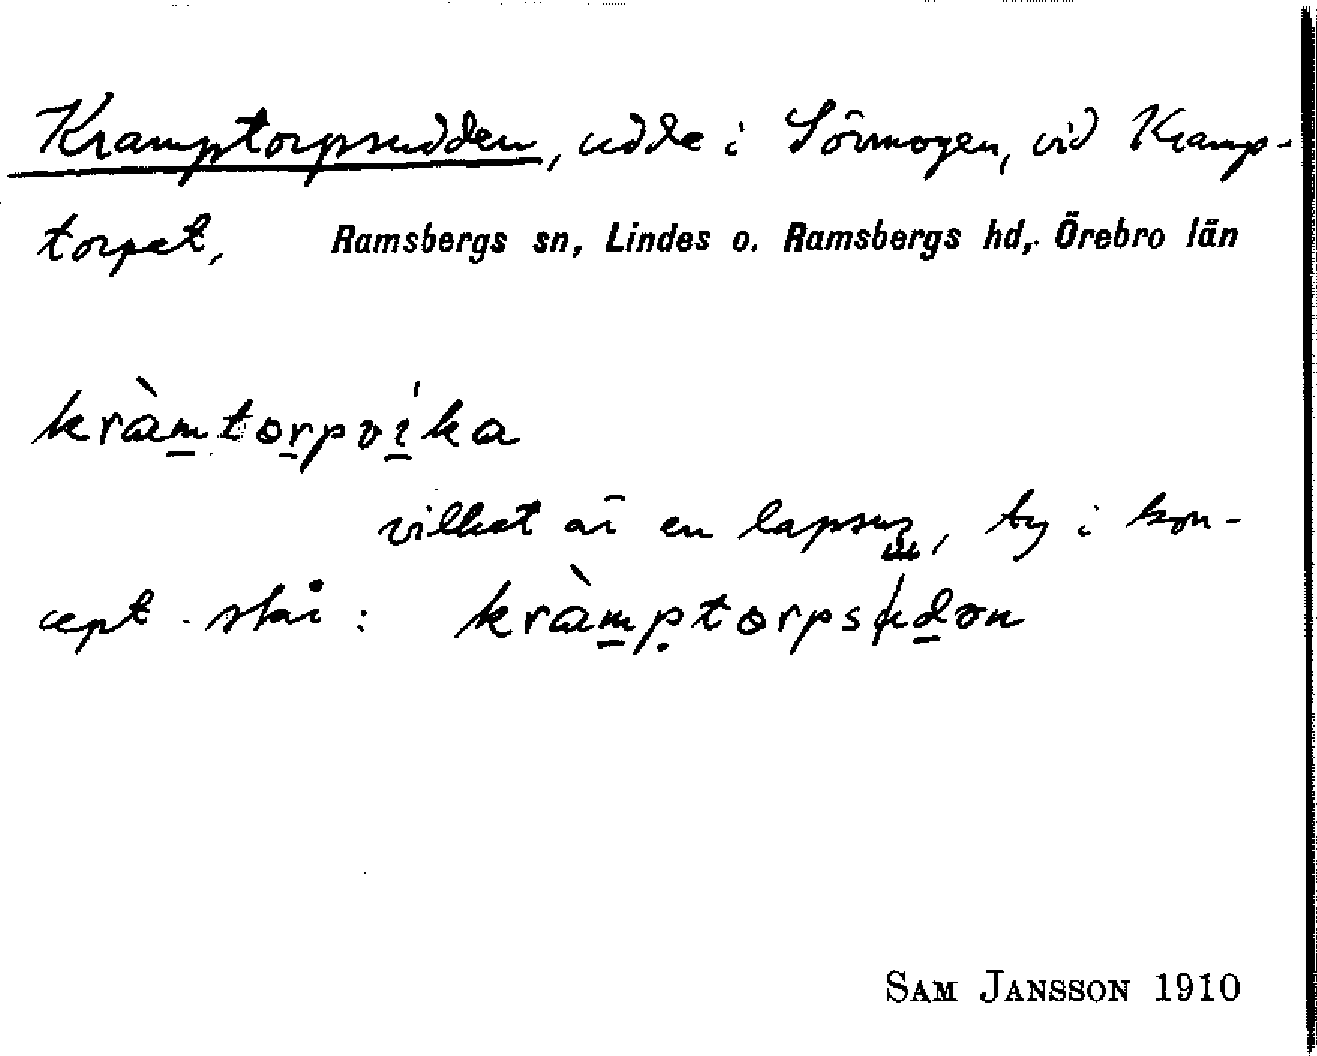 Kramptorpsudden, udde i Sörmogen, vid Kramp-
torpet, Ramsbergs sn, Lindes o. Ramsbergs hd, Örebro län
kràmtorpvíka
vilket är en lapsus, ty i kon-
cept står: kràmptorpsudən
SAM JANSSON 1910